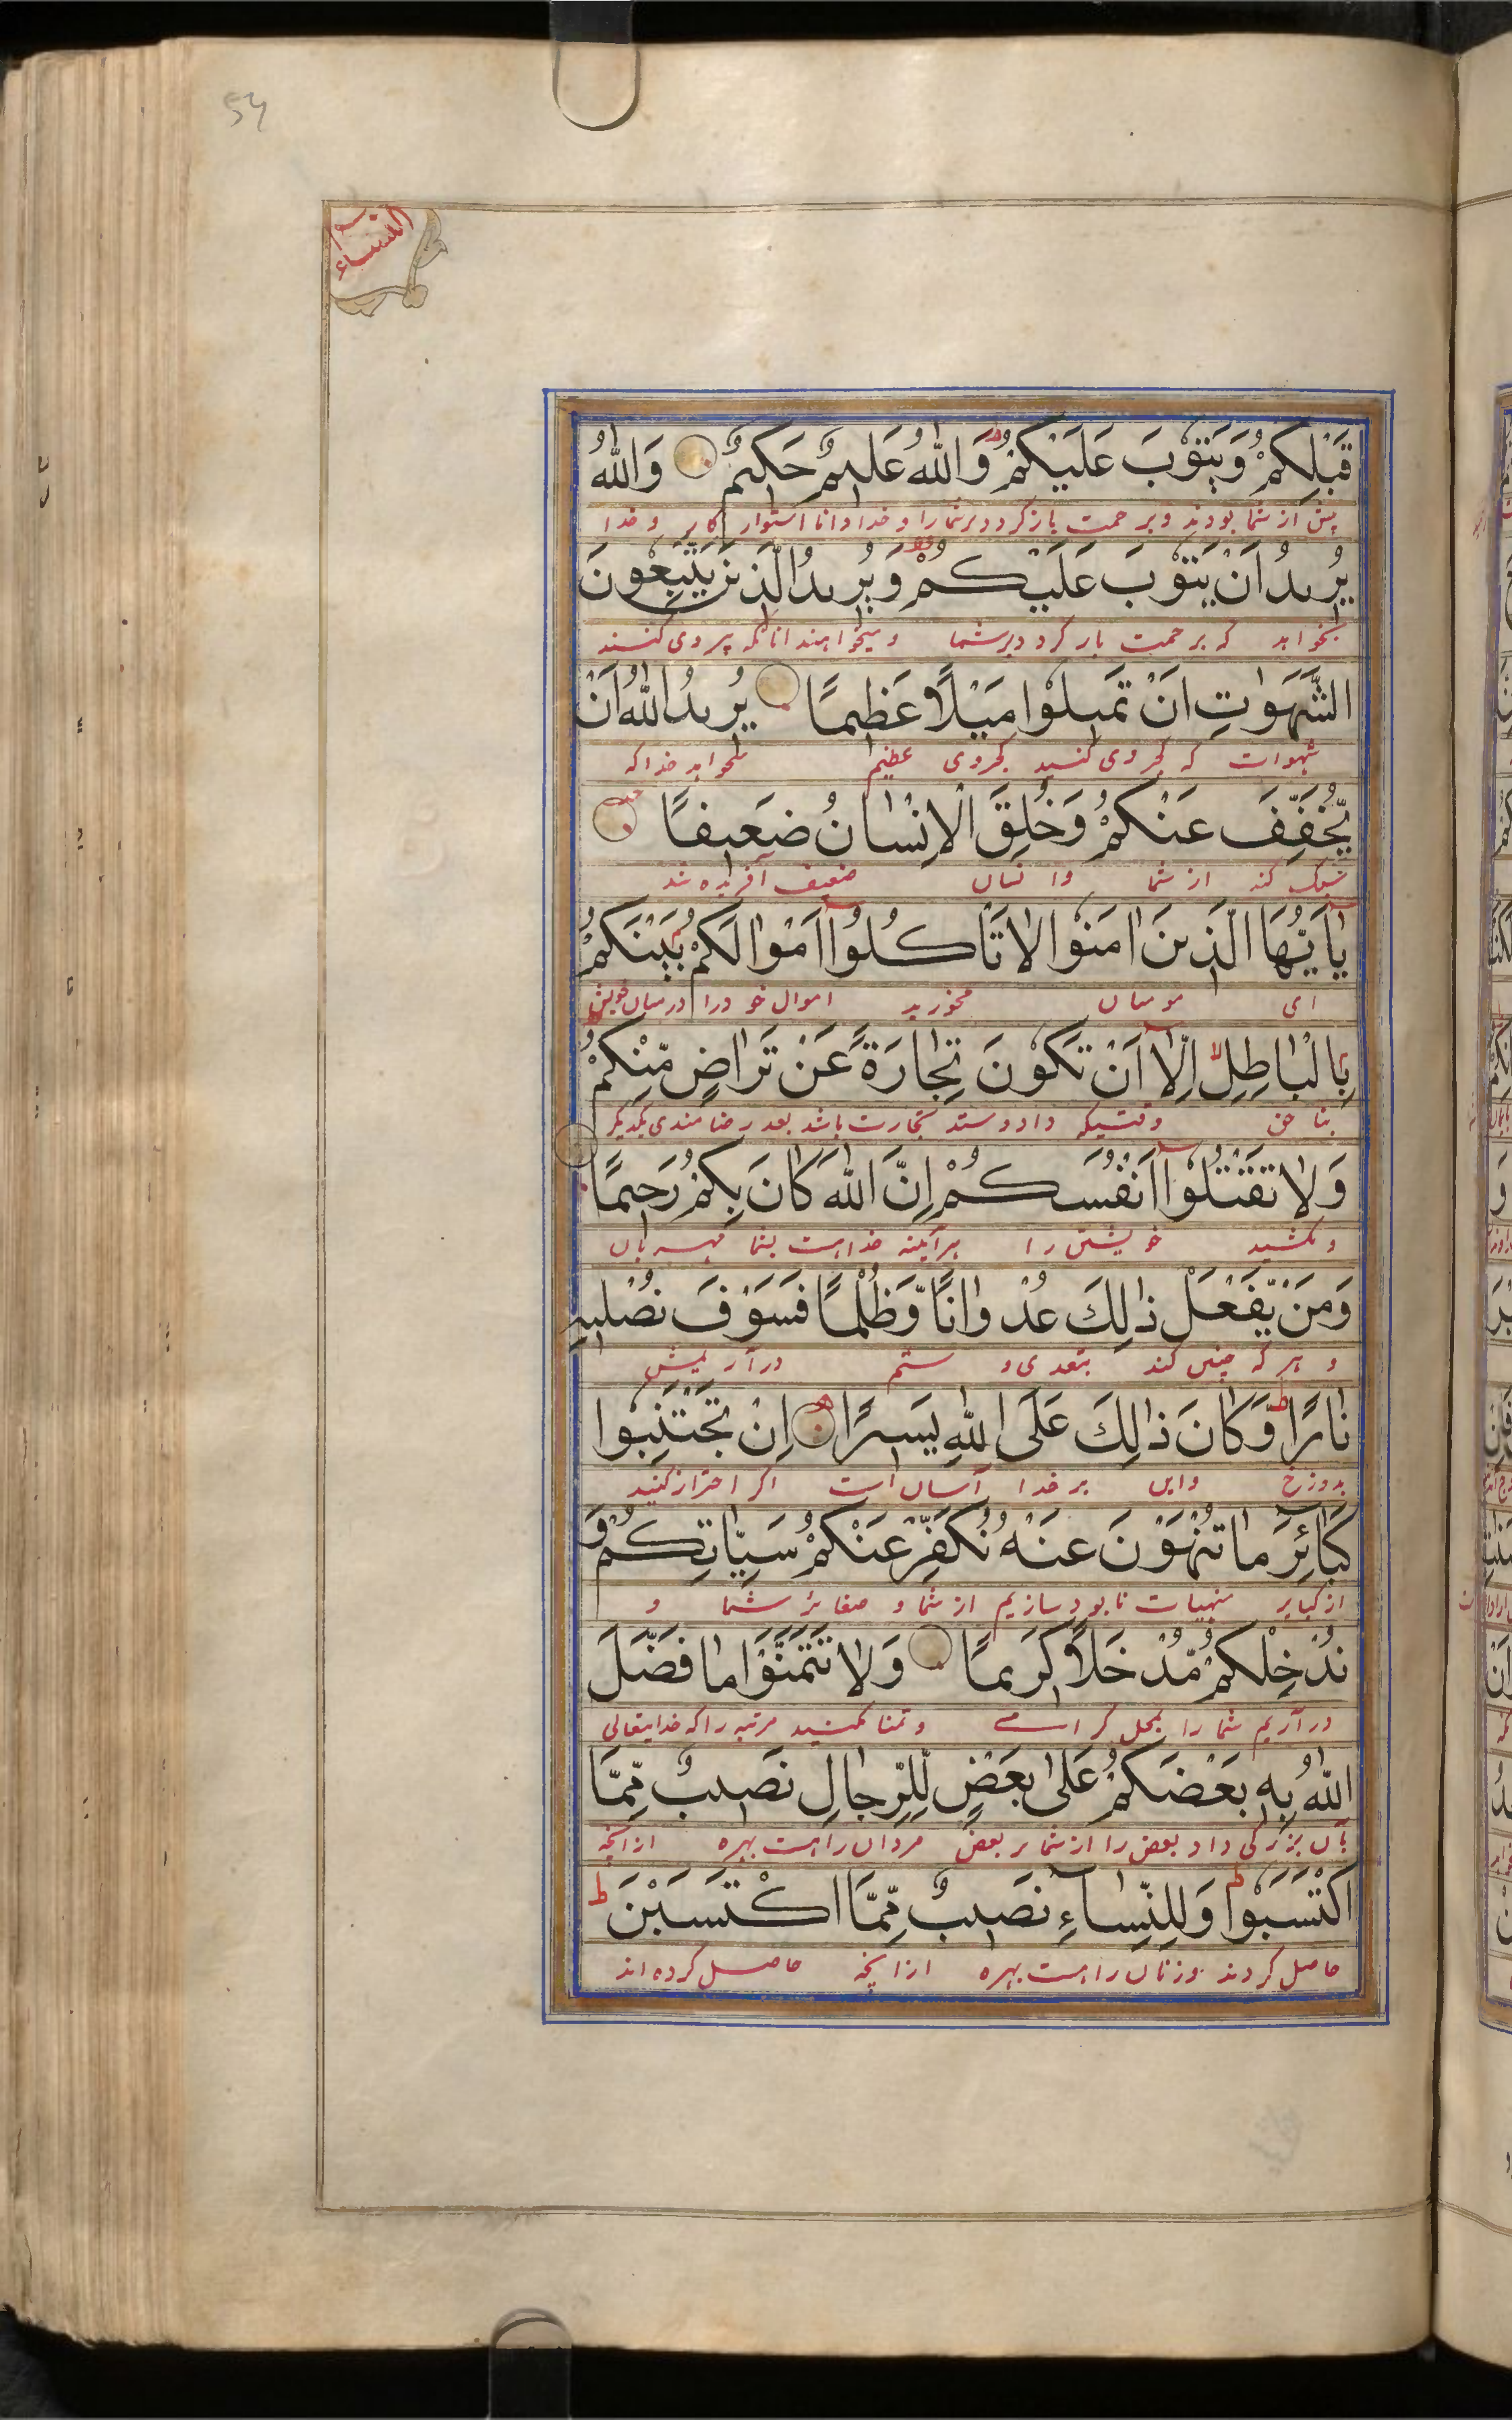 54
النساء
قَبْلِكُمْ وَيَتُوْبَ عَلَيْكُمْ ؕ وَاللّٰهُ عَلِيْمٌ حَكِيْمٌ وَاللّٰهُ
پیش از شما بودند و برحمت باز گردد بر شما را و خدا دانا استوار کار و خدا
يُرِيْدُ اَنْ يَّتُوْبَ عَلَيْكُمْ وَيُرِيْدُ الَّذِيْنَ يَتَّبِعُوْنَ
که برحمت باز گردد بر شما و میخواهند آنانکه پیروی کنند
الشَّهَوٰتِ اَنْ تَمِيْلُوْا مَيْلًا عَظِيْمًا يُرِيْدُ اللّٰهُ اَنْ
شهوات که کجروی کنید کجروی عظیم میخواهد خدا که
يُّخَفِّفَ عَنْكُمْ وَخُلِقَ الْاِنْسَانُ ضَعِيْفًا
سبک کند از شما و انسان ضعیف آفریده شد
يٰۤاَيُّهَا الَّذِيْنَ اٰمَنُوْا لَا تَاْكُلُوْۤا اَمْوَالَكُمْ بَيْنَكُمْ
ای مومنان مخورید اموال خود را درمیان خویش
بِالْبَاطِلِ اِلَّاۤ اَنْ تَكُوْنَ تِجَارَةً عَنْ تَرَاضٍ مِّنْكُمْ
بناحق وقتیکه داد و ستد تجارت باشد بعد رضامندی یکدیگر
وَلَا تَقْتُلُوْۤا اَنْفُسَكُمْ اِنَّ اللّٰهَ كَانَ بِكُمْ رَحِيْمًا
و مکشید خویشتن را هرآئینه خدا هست بشما مهربان
وَمَنْ يَّفْعَلْ ذٰلِكَ عُدْوَانًا وَّظُلْمًا فَسَوْفَ نُصْلِيْهِ
و هر که چنین کند بتعدی و ستم درآریمش
نَارًا ؕ وَكَانَ ذٰلِكَ عَلَى اللّٰهِ يَسِيْرًا اِنْ تَجْتَنِبُوْا
بدوزخ و این بر خدا آسان است اگر احتراز کنید
كَبَآئِرَ مَا تُنْهَوْنَ عَنْهُ نُكَفِّرْ عَنْكُمْ سَيِّاٰتِكُمْ وَ
از کبایر منهیات نابود سازیم از شما و صغائر شما و
نُدْخِلْكُمْ مُّدْخَلًا كَرِيْمًا وَلَا تَتَمَنَّوْا مَا فَضَّلَ
درآریم شما را بمحل گرامی و تمنا مکنید مرتبه را که خدایتعالی
اللّٰهُ بِهٖ بَعْضَكُمْ عَلٰى بَعْضٍ لِّلرِّجَالِ نَصِيْبٌ مِّمَّا
بآن بزرگی داد بعض را از شما بر بعض مردان را هست بهره ازانچه
اكْتَسَبُوْا ؕ وَلِلنِّسَآءِ نَصِيْبٌ مِّمَّا اكْتَسَبْنَ ؕ
حاصل کردند و زنان را هست بهره ازانچه حاصل کرده اند